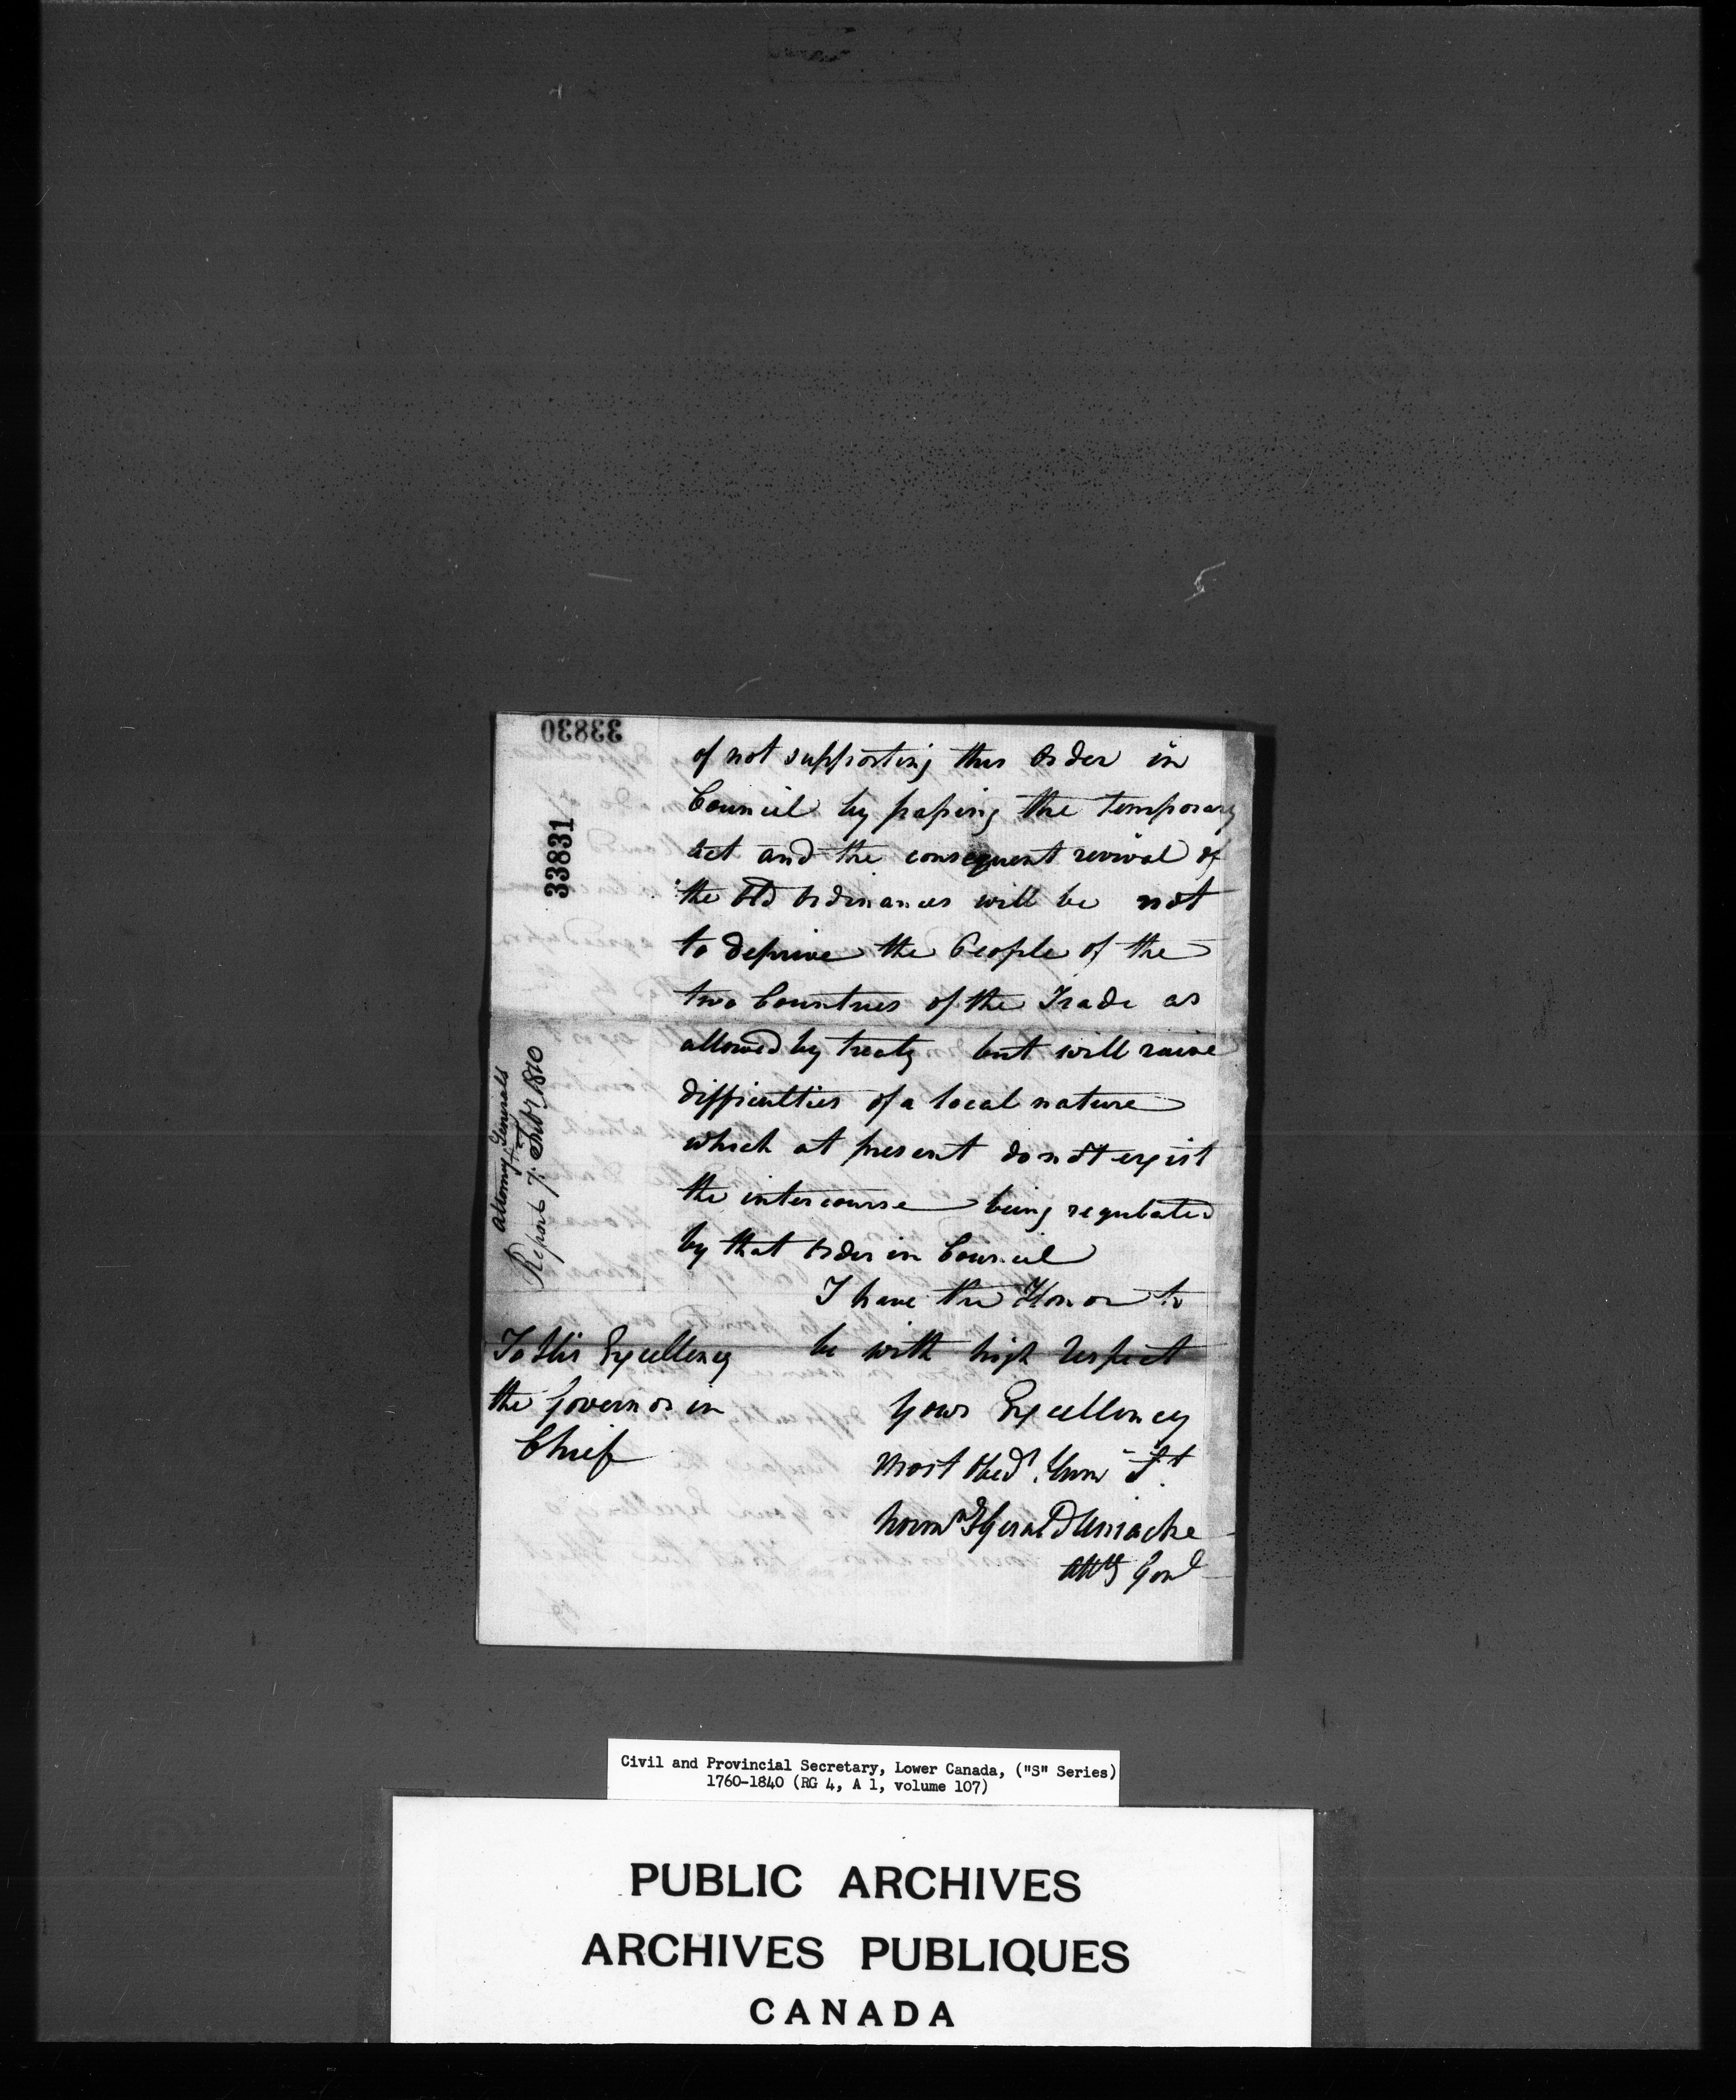 33830
33831
of not supporting this Order in
Council by passing the temporary
act and the consequent revival of
the Old Ordinances will be not
to deprive the People of the
two Countries of the Trade as
allowed by treaty but will raise
difficulties of a local nature
which at present do not exist
the intercourse being regulated
by that Order in Council
I have the Honor to
be with high respect
Your Excellency
most Obed.t
Attorney Generals
Report 7. Feb.y 1810
To His Excellency
the Governor in
Chief
Uniacke
Att.y Gen.l
Civil and Provincial Secretary, Lower Canada, ("S" Series)
1760-1840 (RG 4, A 1, volume 107)
PUBLIC ARCHIVES
ARCHIVES PUBLIQUES
CANADA